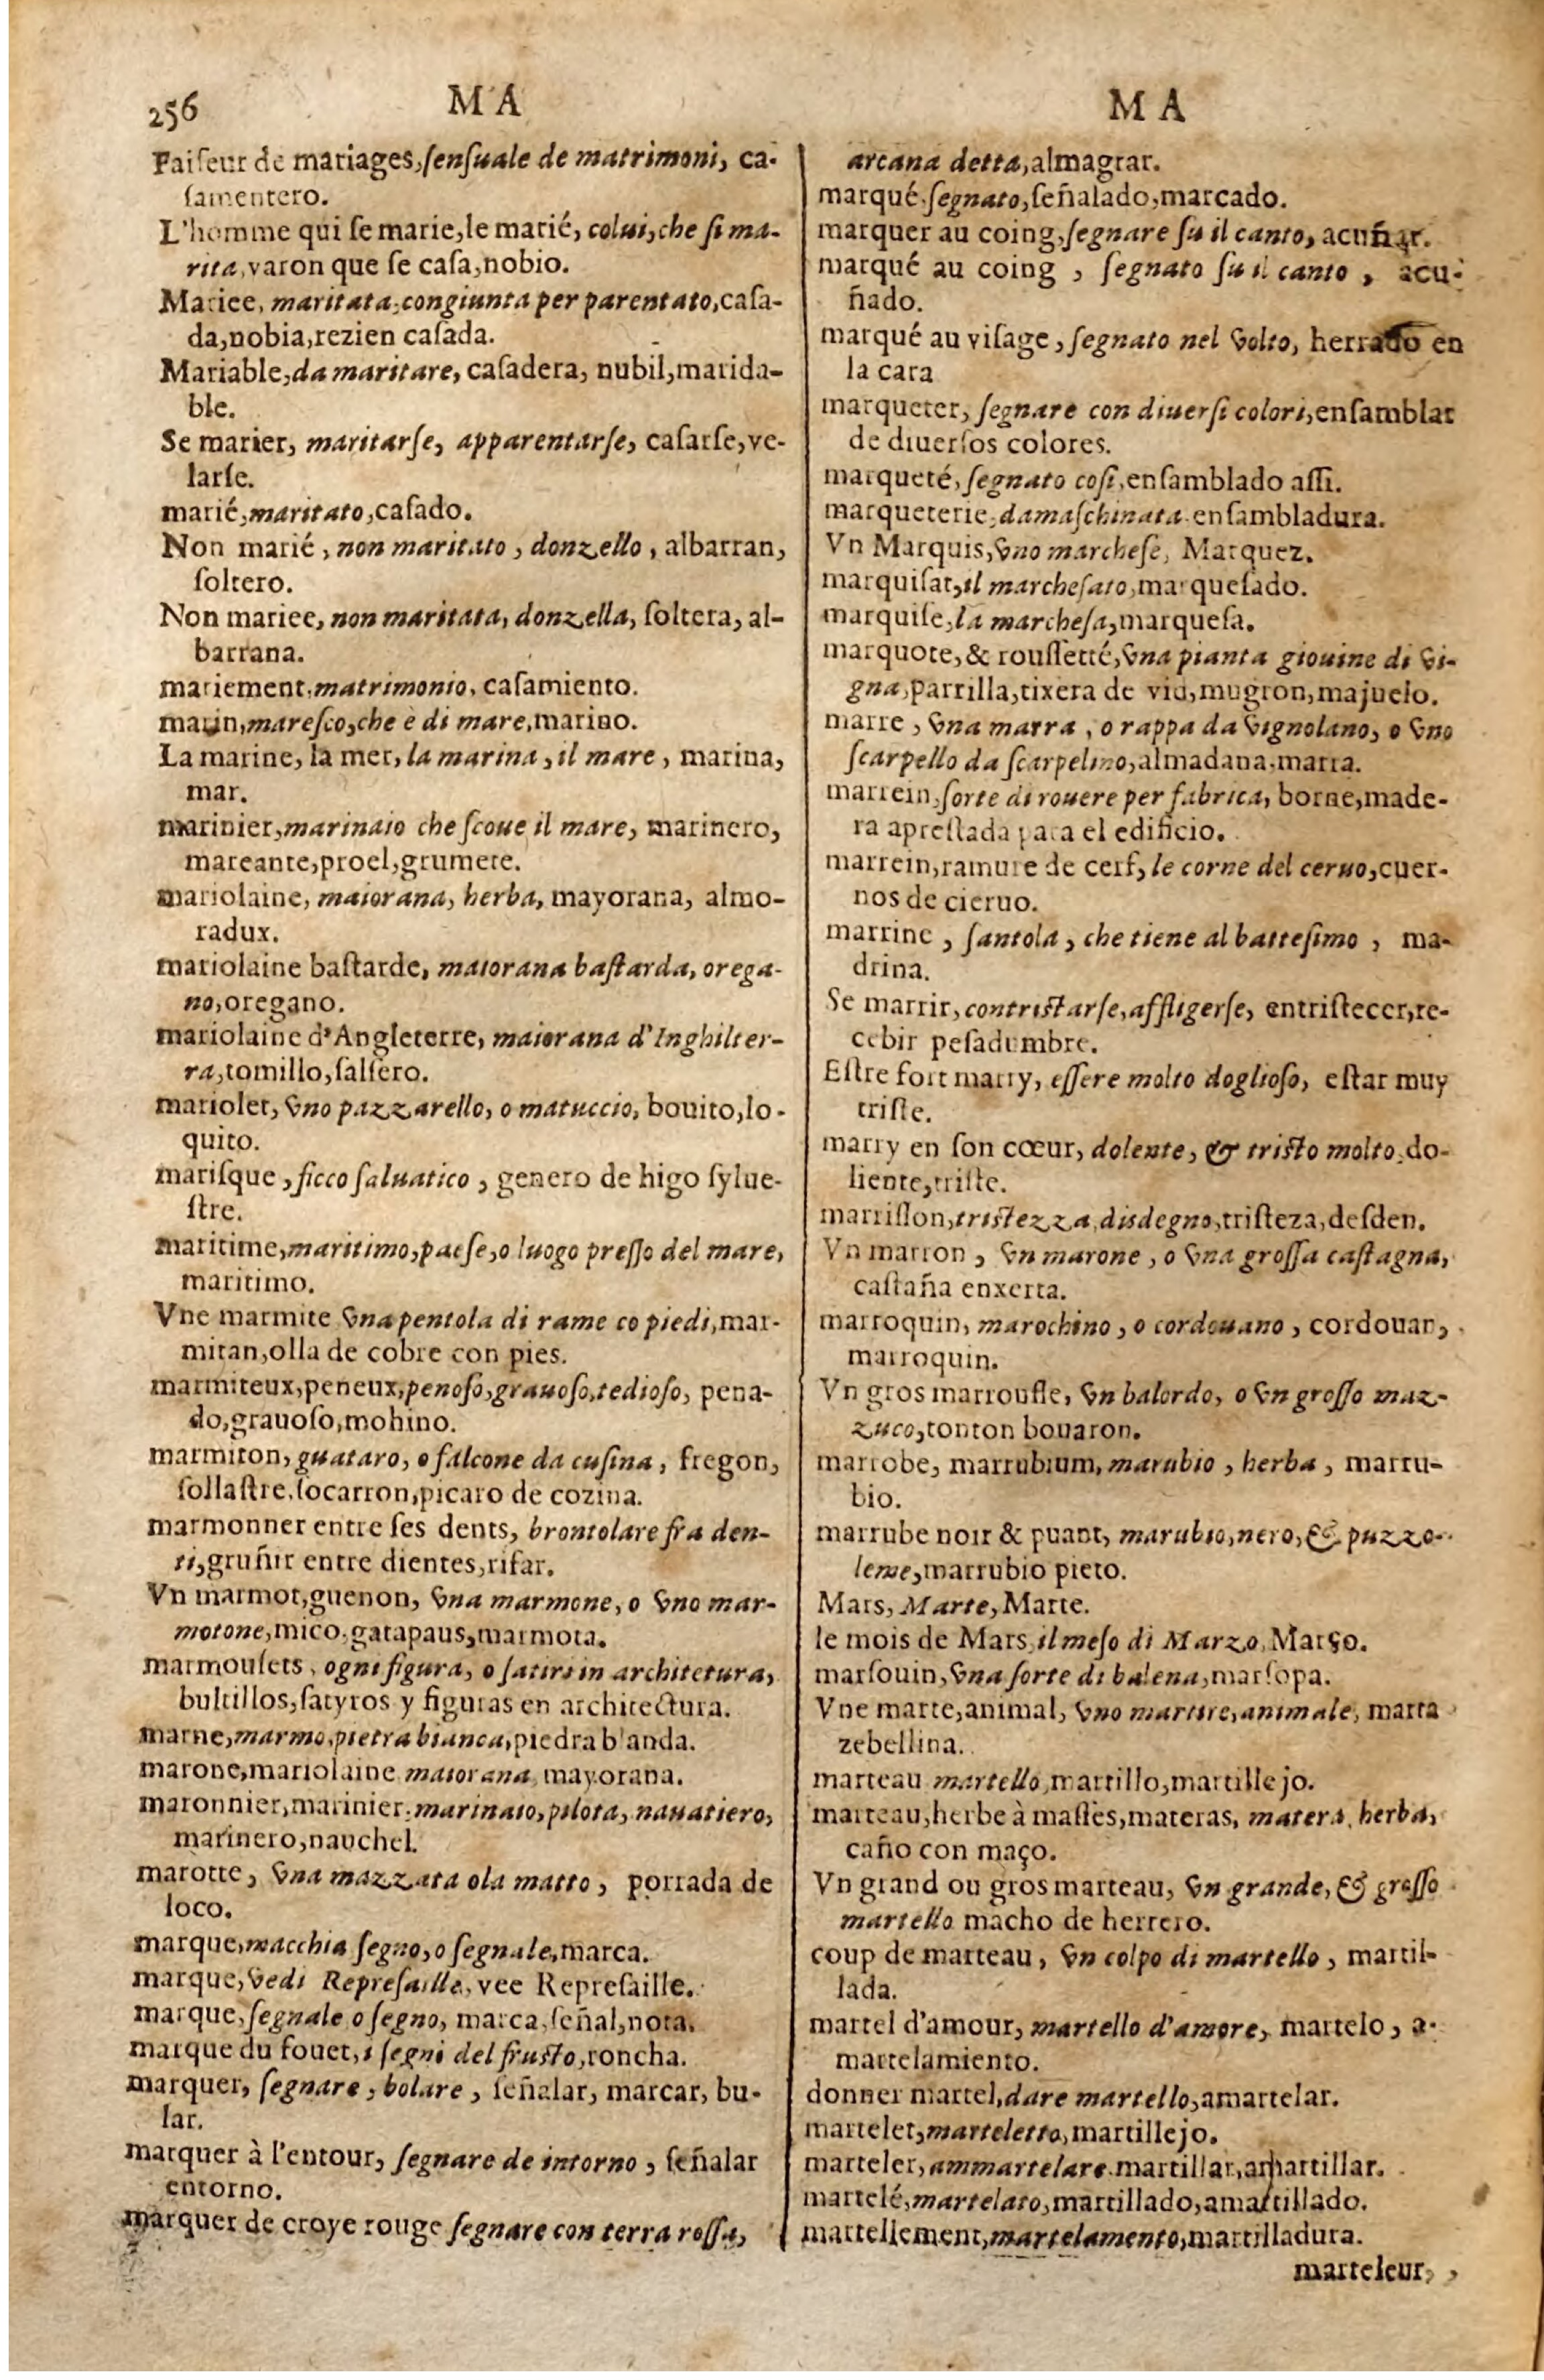 256
MA
MA
Faiſeur de mariages, ſenſuale de matrimoni, ca-
ſamentero.
L'homme qui ſe marie, le marié, colui, che ſi ma-
rita, varon que ſe caſa, nobio.
Mariee, maritata, congiunta per parentato, caſa-
da, nobia, rezien caſada.
Mariable, da maritare, caſadera, nubil, marida-
ble.
Se marier, maritarſe, apparentarſe, caſarſe, ve-
larſe.
marié, maritato, caſado.
Non marié, non maritato, donzello, albarran,
ſoltero.
Non mariee, non maritata, donzella, ſoltera, al-
barrana.
mariement, matrimonio, caſamiento.
marin, mareſco, che è di mare, marino.
La marine, la mer, la marina, il mare, marina,
mar.
marinier, marinaio che ſcoue il mare, marinero,
mareante, proel, grumete.
mariolaine, maiorana, herba, mayorana, almo-
radux.
mariolaine baſtarde, maiorana baſtarda, orega-
no, oregano.
mariolaine d'Angleterre, maiorana d'Inghilter-
ra, tomillo, ſalſero.
mariolet, vno pazzarello, o matuccio, bouito, lo-
quito.
mariſque, ficco ſaluatico, genero de higo ſylue-
ſtre.
maritime, maritimo, paeſe, o luogo preſſo del mare,
maritimo.
Vne marmite vna pentola di rame co piedi, mar-
mitan, olla de cobre con pies.
marmiteux, peneux, penoſo, grauoſo, tedioſo, pena-
do, grauoſo, mohino.
marmiton, guataro, o falcone da cuſina, fregon,
ſollaſtre, ſocarron, picaro de cozina.
marmonner entre ſes dents, brontolare fra den-
ti, gruñir entre dientes, rifar.
Vn marmot, guenon, vna marmone, o vno mar-
motone, mico, gatapaus, marmota.
marmouſets, ogni figura, o ſatiri in architetura,
bultillos, ſatyros y figuras en architectura.
marne, marmo, pietra bianca, piedra blanda.
marone, mariolaine maiorana, mayorana.
maronnier, marinier, marinaio, pilota, nauatiero,
marinero, nauchel.
marotte, vna mazzata ola matto, porrada de
loco.
marque, macchia ſegno, o ſegnale, marca.
marque, vedi Repreſaille, vee Repreſaille.
marque, ſegnale o ſegno, marca, ſeñal, nota.
marque du fouet, i ſegni del fruſto, roncha.
marquer, ſegnare, bolare, ſeñalar, marcar, bu-
lar.
marquer à l'entour, ſegnare de intorno, ſeñalar
entorno.
marquer de croye rouge ſegnare con terra roſſa,
arcana detta, almagrar.
marqué, ſegnato, ſeñalado, marcado.
marquer au coing, ſegnare ſu il canto, acuñar.
marqué au coing, ſegnato ſu il canto, acu-
ñado.
marqué au viſage, ſegnato nel volto, herrado en
la cara
marqueter, ſegnare con diuerſi colori, enſamblar
de diuerſos colores.
marqueté, ſegnato coſi, enſamblado aſſi.
marqueterie, damaſchinata enſambladura.
Vn Marquis, vno marcheſe, Marquez.
marquiſat, il marcheſato, marqueſado.
marquiſe, la marcheſa, marqueſa.
marquote, & rouſſetté, vna pianta giouine di vi-
gna, parrilla, tixera de vid, mugron, majuelo.
marre, vna marra, o rappa da vignolano, o vno
ſcarpello da ſcarpelino, almadana, marra.
marrein, ſorte di rouere per fabrica, borne, made-
ra apreſtada para el edificio.
marrein, ramure de cerf, le corne del ceruo, cuer-
nos de cieruo.
marrine, ſantola, che tiene al batteſimo, ma-
drina.
Se marrir, contriſtarſe, affligerſe, entriſtecer, re-
cebir peſadumbre.
Eſtre fort marry, eſſere molto doglioſo, eſtar muy
triſte.
marry en ſon cœur, dolente, & triſto molto, do-
liente, triſte.
marriſſon, triſtezza, disdegno, triſteza, deſden.
Vn marron, vn marone, o vna groſſa caſtagna,
caſtaña enxerta.
marroquin, marochino, o cordouano, cordouan,
marroquin.
Vn gros marroufle, vn balordo, o vn groſſo maz-
zuco, tonton bouaron.
marrobe, marrubium, marubio, herba, marru-
bio.
marrube noir & puant, marubio, nero, & puzzo-
leme, marrubio pieto.
Mars, Marte, Marte.
le mois de Mars, il meſo di Marzo, Março.
marſouin, vna ſorte di balena, marſopa.
Vne marte, animal, vno martire, animale, marta
zebellina.
marteau martello, martillo, martillejo.
marteau, herbe à maſſes, materas, matera, herba,
caño con maço.
Vn grand ou gros marteau, vn grande, & groſſo
martello macho de herrero.
coup de marteau, vn colpo di martello, martil-
lada.
martel d'amour, martello d'amore, martelo, a-
martelamiento.
donner martel, dare martello, amartelar.
martelet, marteletto, martillejo.
marteler, ammartelare. martillar, amartillar.
martelé, martelato, martillado, amartillado.
martellement, martelamento, martilladura.
marteleur,